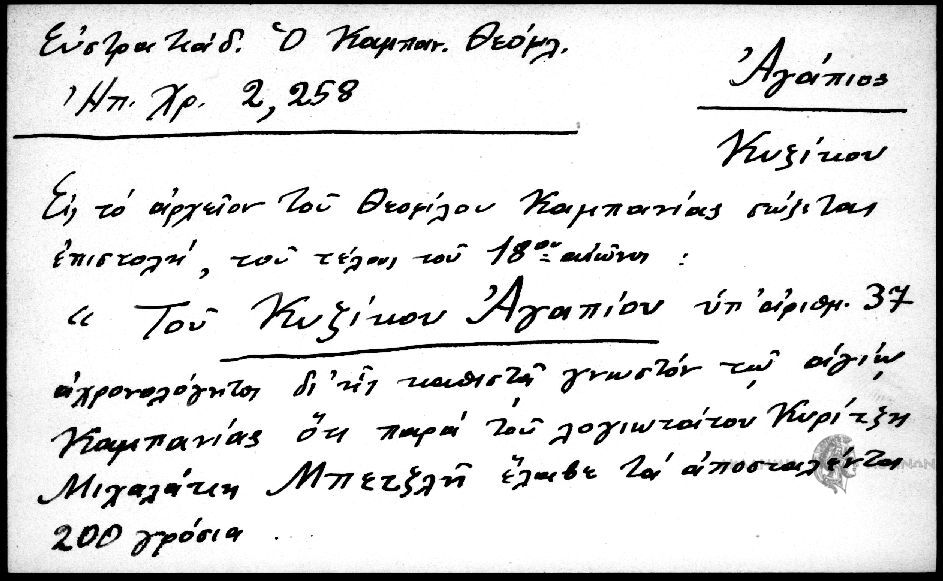 Εὐστρατιάδ. Ὁ Καμπαν. Θεόφιλ.
Ἠπ. Χρ. 2,258
Ἀγάπιος
Κυζίκου
Εἰς τό ἀρχεῖον τοῦ Θεοφίλου Καμπανίας σώζεται
ἐπιστολή, τοῦ τέλους τοῦ 18ου αἰῶνος :
“ Τοῦ Κυζίκου Ἀγαπίου ὑπ' ἀριθμ. 37
ἀχρονολόγητος δι' ἧς καθιστᾷ γνωστόν τῷ ἁγίῳ
Καμπανίας ὅτι παρά τοῦ λογιωτάτου Κυρίτζη
Μιχαλάκη Μπετζλῆ ἔλαβε τά ἀποσταλέντα
200 γρόσια